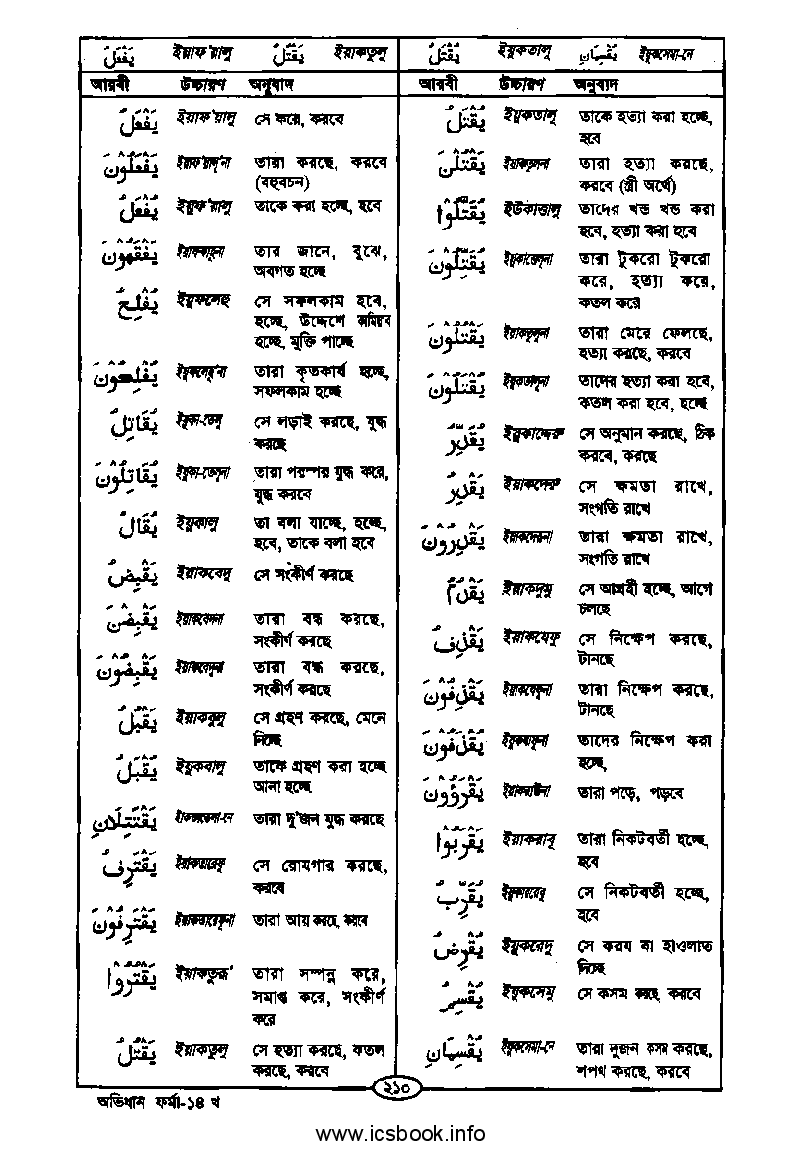 يَفْعَلُ ইয়াফ'য়ালু يَقْتُلُ ইয়াকতুলু
আরবী উচ্চারণ অনুবাদ
يَفْعَلُ ইয়াফ'য়ালু সে করে, করবে
يَفْعَلُوْنَ ইয়াফ'য়ালূনা তারা করছে, করবে
(বহুবচন)
يُفْعَلُ ইয়ুফ'য়ালু তাকে করা হচ্ছে, হবে
يَفْقَهُوْنَ ইয়াফকাহূনা তার জানে, বুঝে,
অবগত হচ্ছে
يُفْلِحُ ইয়ুফলেহু সে সফলকাম হবে,
হচ্ছে, উদ্দেশে অমিয়ব
হচ্ছে, মুক্তি পাচ্ছে
يُفْلِحُوْنَ ইয়ুফলেহূনা তারা কৃতকার্য হচ্ছে,
সফলকাম হচ্ছে
يُقَاتِلُ ইয়ুকা-তেলু সে লড়াই করছে, যুদ্ধ
করছে
يُقَاتِلُوْنَ ইয়ুকা-তেলূনা তারা পরস্পর যুদ্ধ করে,
যুদ্ধ করবে
يُقَالُ ইয়ুকালু তা বলা যাচ্ছে, হচ্ছে,
হবে, তাকে বলা হবে
يَقْبِضُ ইয়াকবেদু সে সংকীর্ণ করছে
يَقْبِضْنَ ইয়াকবেদনা তারা বন্ধ করছে,
সংকীর্ণ করছে
يَقْبِضُوْنَ ইয়াকবেদূনা তারা বন্ধ করছে,
সংকীর্ণ করছে
يَقْبَلُ ইয়াকবুলু সে গ্রহণ করছে, মেনে
নিচ্ছে
يُقْبَلُ ইয়ুকবালু তাকে গ্রহণ করা হচ্ছে
আনা হচ্ছে
يَقْتَتِلَانِ ইয়াকতাতেলা-নে তারা দু'জন যুদ্ধ করছে
يَقْتَرِفُ ইয়াকতারেফু সে রোযগার করছে,
করবে
يَقْتَرِفُوْنَ ইয়াকতারেফূনা তারা আয় করছে, করবে
يَقْتُرُوْا ইয়াকতুরূ' তারা সম্পন্ন করে,
সমাপ্ত করে, সংকীর্ণ
করে
يَقْتُلُ ইয়াকতুলু সে হত্যা করছে, কতল
করছে, করবে
يُقْتَلُ ইয়ুকতালু يُقْسِمَانِ ইয়ুকসেমা-নে
আরবী উচ্চারণ অনুবাদ
يُقْتَلُ ইয়ুকতালু তাকে হত্যা করা হচ্ছে,
হবে
يَقْتُلْنَ ইয়াকতুলনা তারা হত্যা করছে,
করবে (স্ত্রী অর্থে)
يُقَتَّلُوْا ইউকাত্তালু তাদের খন্ড খন্ড করা
হবে, হত্যা করা হবে
يُقَتِّلُوْنَ ইয়ুকাত্তেলূনা তারা টুকরো টুকরো
করে, হত্যা করে,
কতল করে
يَقْتُلُوْنَ ইয়াকতুলূনা তারা মেরে ফেলছে,
হত্যা করছে, করবে
يُقْتَلُوْنَ ইয়ুকতালূনা তাদের হত্যা করা হবে,
কতল করা হবে, হচ্ছে
يُقَدِّرُ ইয়ুকাদ্দেরু সে অনুমান করছে, ঠিক
করবে, করছে
يَقْدِرُ ইয়াকদেরু সে ক্ষমতা রাখে,
সংগতি রাখে
يَقْدِرُوْنَ ইয়াকদেরূনা তারা ক্ষমতা রাখে,
সংগতি রাখে
يَقْدُمُ ইয়াকদুমু সে আগ্রহী হচ্ছে, আগে
চলছে
يَقْذِفُ ইয়াকযেফু সে নিক্ষেপ করছে,
টানছে
يَقْذِفُوْنَ ইয়াকযেফূনা তারা নিক্ষেপ করছে,
টানছে
يُقْذَفُوْنَ ইয়ুকযাফূনা তাদের নিক্ষেপ করা
হচ্ছে,
يَقْرَؤُوْنَ ইয়াকরাউনা তারা পড়ে, পড়বে
يَقْرَبُوْا ইয়াকরাবূ তারা নিকটবর্তী হচ্ছে,
হবে
يُقَرِّبُ ইয়ুকাররেবু সে নিকটবর্তী হচ্ছে,
হবে
يُقْرِضُ ইয়ুকরেদু সে করয বা হাওলাত
দিচ্ছে
يُقْسِمُ ইয়ুকসেমু সে কসম করছে করবে
يُقْسِمَانِ ইয়ুকসেমা-নে তারা দুজন কসম করছে,
শপথ করছে, করবে
২১০
অভিধান ফর্মা-১৪ খ
www.icsbook.info